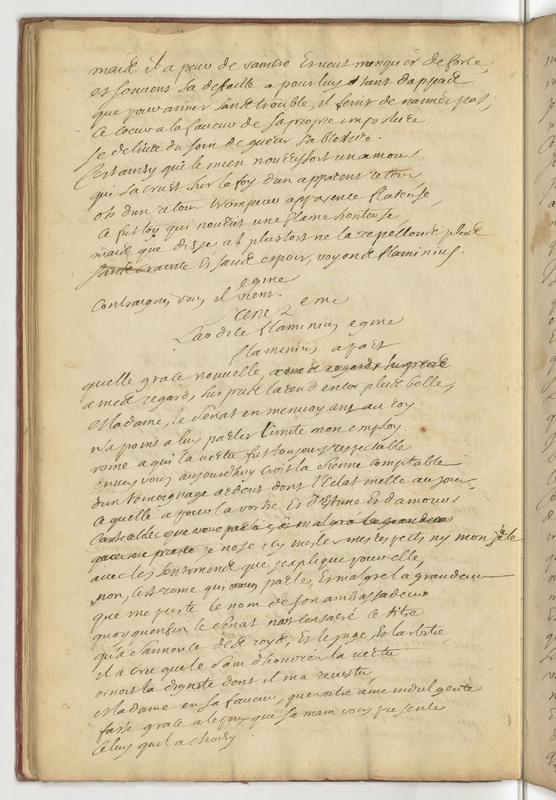 mais il a peur de vaincre Et veut manquer de force,
et souvent sa defaitte a pour luy tant dappas
que pour aimer sans trouble, il feint de naimer pas,
A coeur a la faveur de sa propre imposture
se delivre du soin de guerir sa blessure.
Certainsy que le mien nourrissoit un amour
qui sa crust sur la foy dun apparent retour
oh dun retour trompeur apparence flateuse,
Ce fut toy qui nourrit une flame honteuse,
mais que dis je ah plustost ne la rapellons plus
sans crainte Et sans espoir, voyons flaminius.
egine
Contraignes vous il vient.
scene 2 eme
Laodice flaminius egine
flaminius apart
quelle grace nouvelle
a mes regards surpris la rend encor plus belle,
Madame, le Senat en menvoyant au roy
n'a point a luy parler limité mon employ.
rome a qui la vertu fut toujours respectable
envers vous aujourdhuy croit la sienne comptable
d'un temoignage ardent dont l'Eclat mette au jour,
Ce quelle a pour la vostre Et d'Estime Et d'amour
je n'ose icy mesler mes respects ny mon zele
avec les sentimens que j'explique pour elle,
non, c'est rome qui parle, Et malgre la grandeur
que me preste le nom de son ambassadeur
quoy quenfin le senat n'ait consacré ce titre
qu'a s'annoncer des roys, Et le juge Et l'arbitre,
il a cru que le soin d'honorer la vertu
ornoit la dignité dont il m'a revestu,
Madame en sa faveur, que vostre ame indulgente
fasse grace a l'epoux que sa main vous presente
Celuy qu'il a choisy